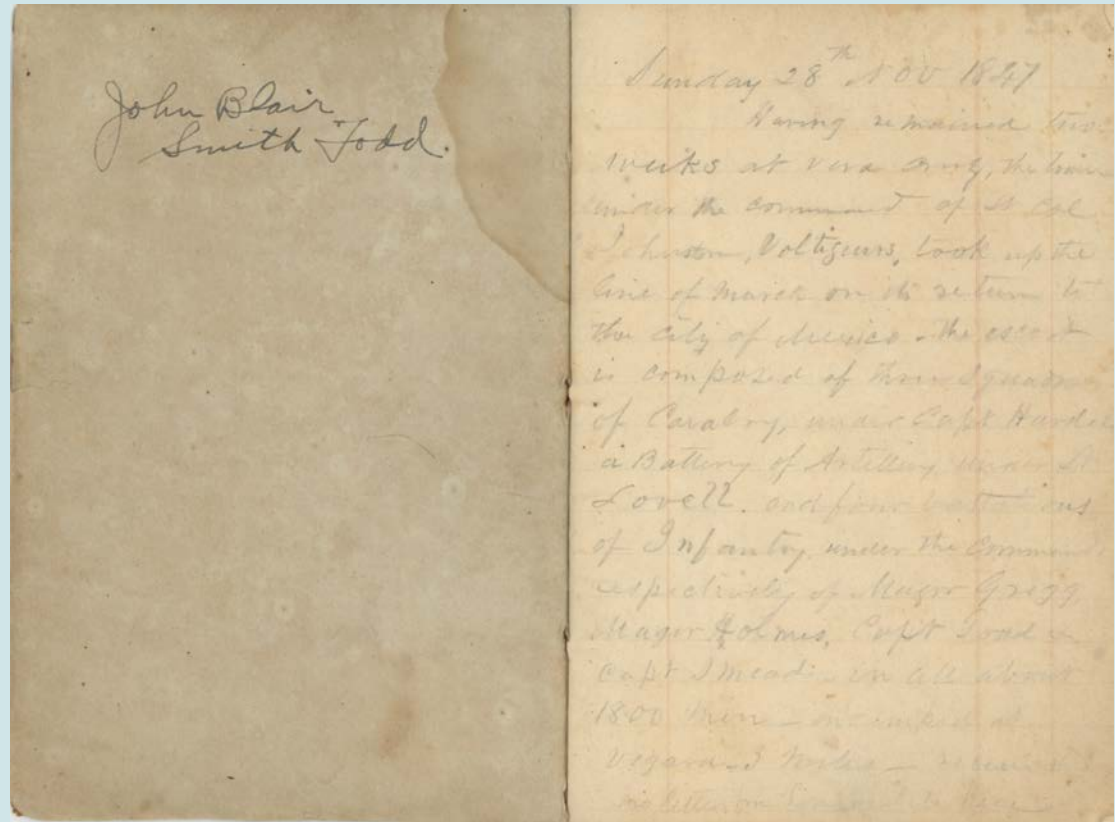 John Blair
Smith Todd.
Sunday 28th Nov 1847
Having remained two
weeks at Vera Cruz, the train
under the command of Lt Col
Johnston, Voltigeurs, took up the
line of march on its return to
the City of Mexico - the escort
is composed of three Squadrons
of Cavalry, under Capt Hardee
a Battery of Artillery under Lt
Lovell, and four battalions
of Infantry, under the command
respectively of Major Gregg,
Major Holmes, Capt
Capt in all about
1800 men - encamped at
Vegara 3 miles -
to